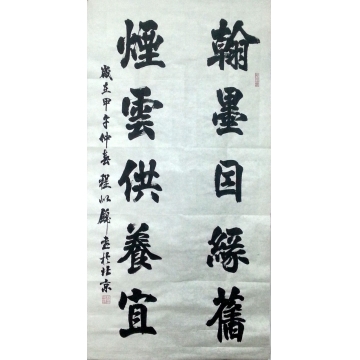 翰墨因緣舊
煙雲供養宜
歲在甲午仲春
書於北京